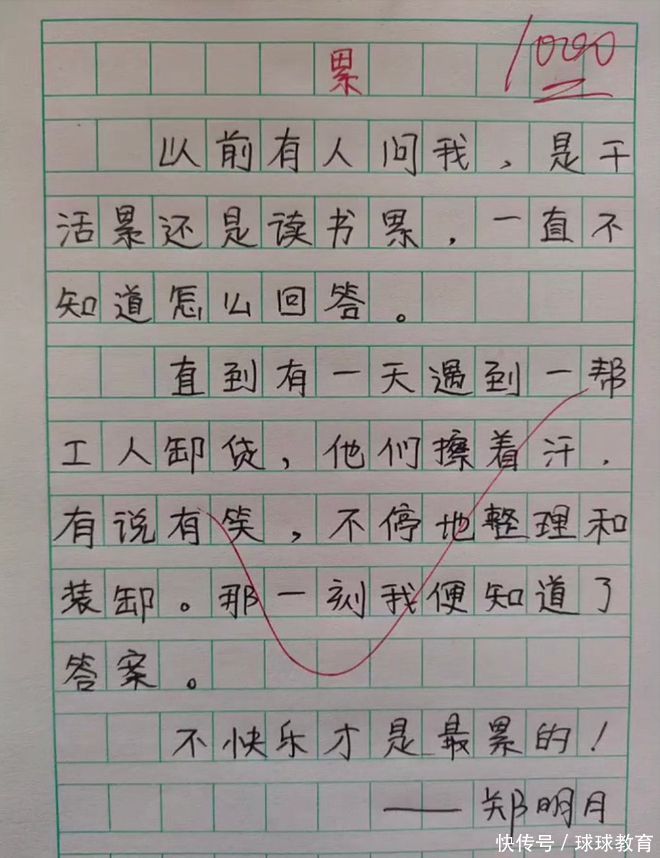 累
1000
以前有人问我，是干
活累还是读书累，一直不
知道怎么回答。
直到有一天遇到一帮
工人卸货，他们擦着汗，
有说有笑，不停地整理和
装卸。那一刻我便知道了
答案。
不快乐才是最累的！
——郑明月
快传号／球球教育